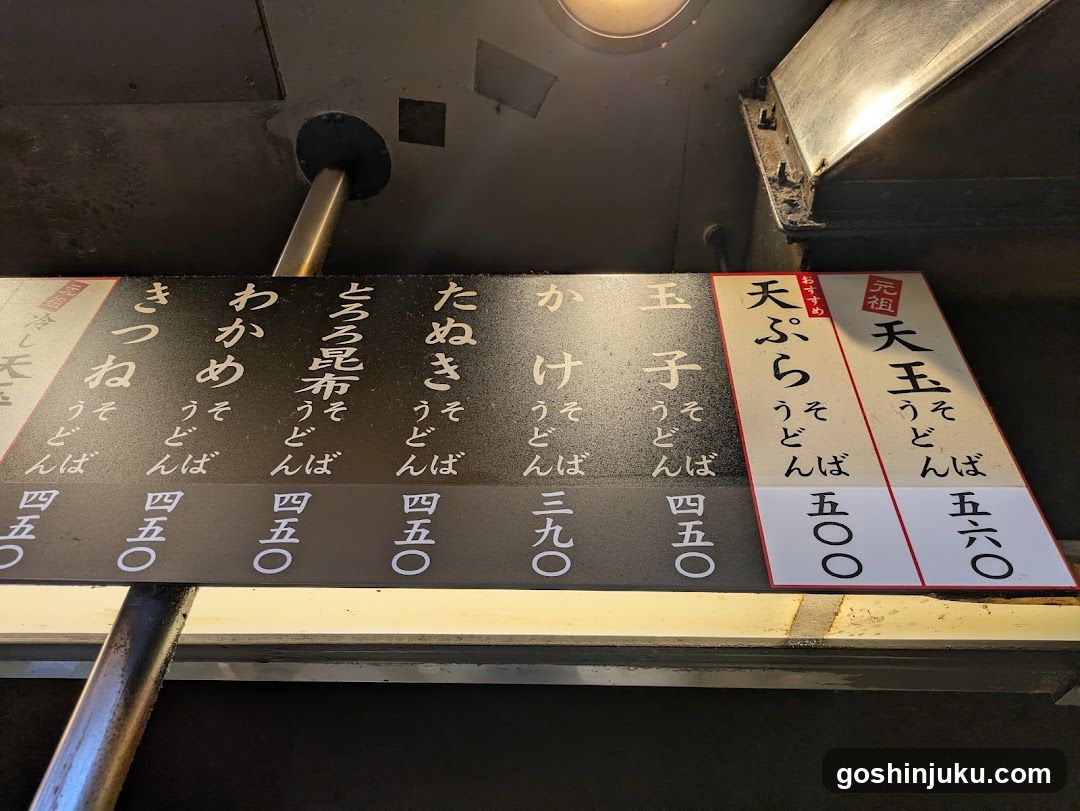 元祖
天玉
そば
うどん
五六〇
おすすめ
天ぷら
そば
うどん
五〇〇
玉子
そば
うどん
四五〇
かけ
そば
うどん
三九〇
たぬき
そば
うどん
四五〇
とろろ昆布
そば
うどん
四五〇
わかめ
そば
うどん
四五〇
きつね
そば
うどん
四五〇
冷し天玉
goshinjuku.com